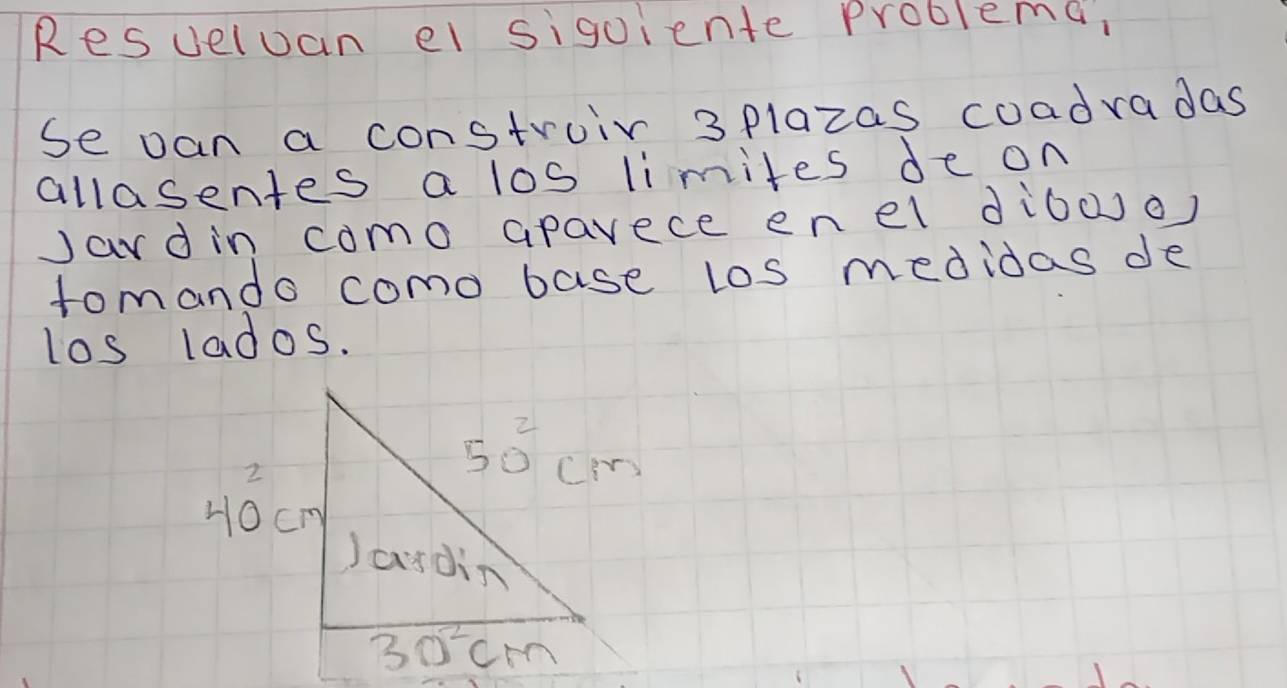 Resuelvan el siguiente problema,
Se van a construir 3 plazas cuadradas
allasentes a los limites de un
Jardin como aparece en el dibujo,
tomando como base los medidas de
los lados.
50² cm
40² cm
Jardin
30² cm